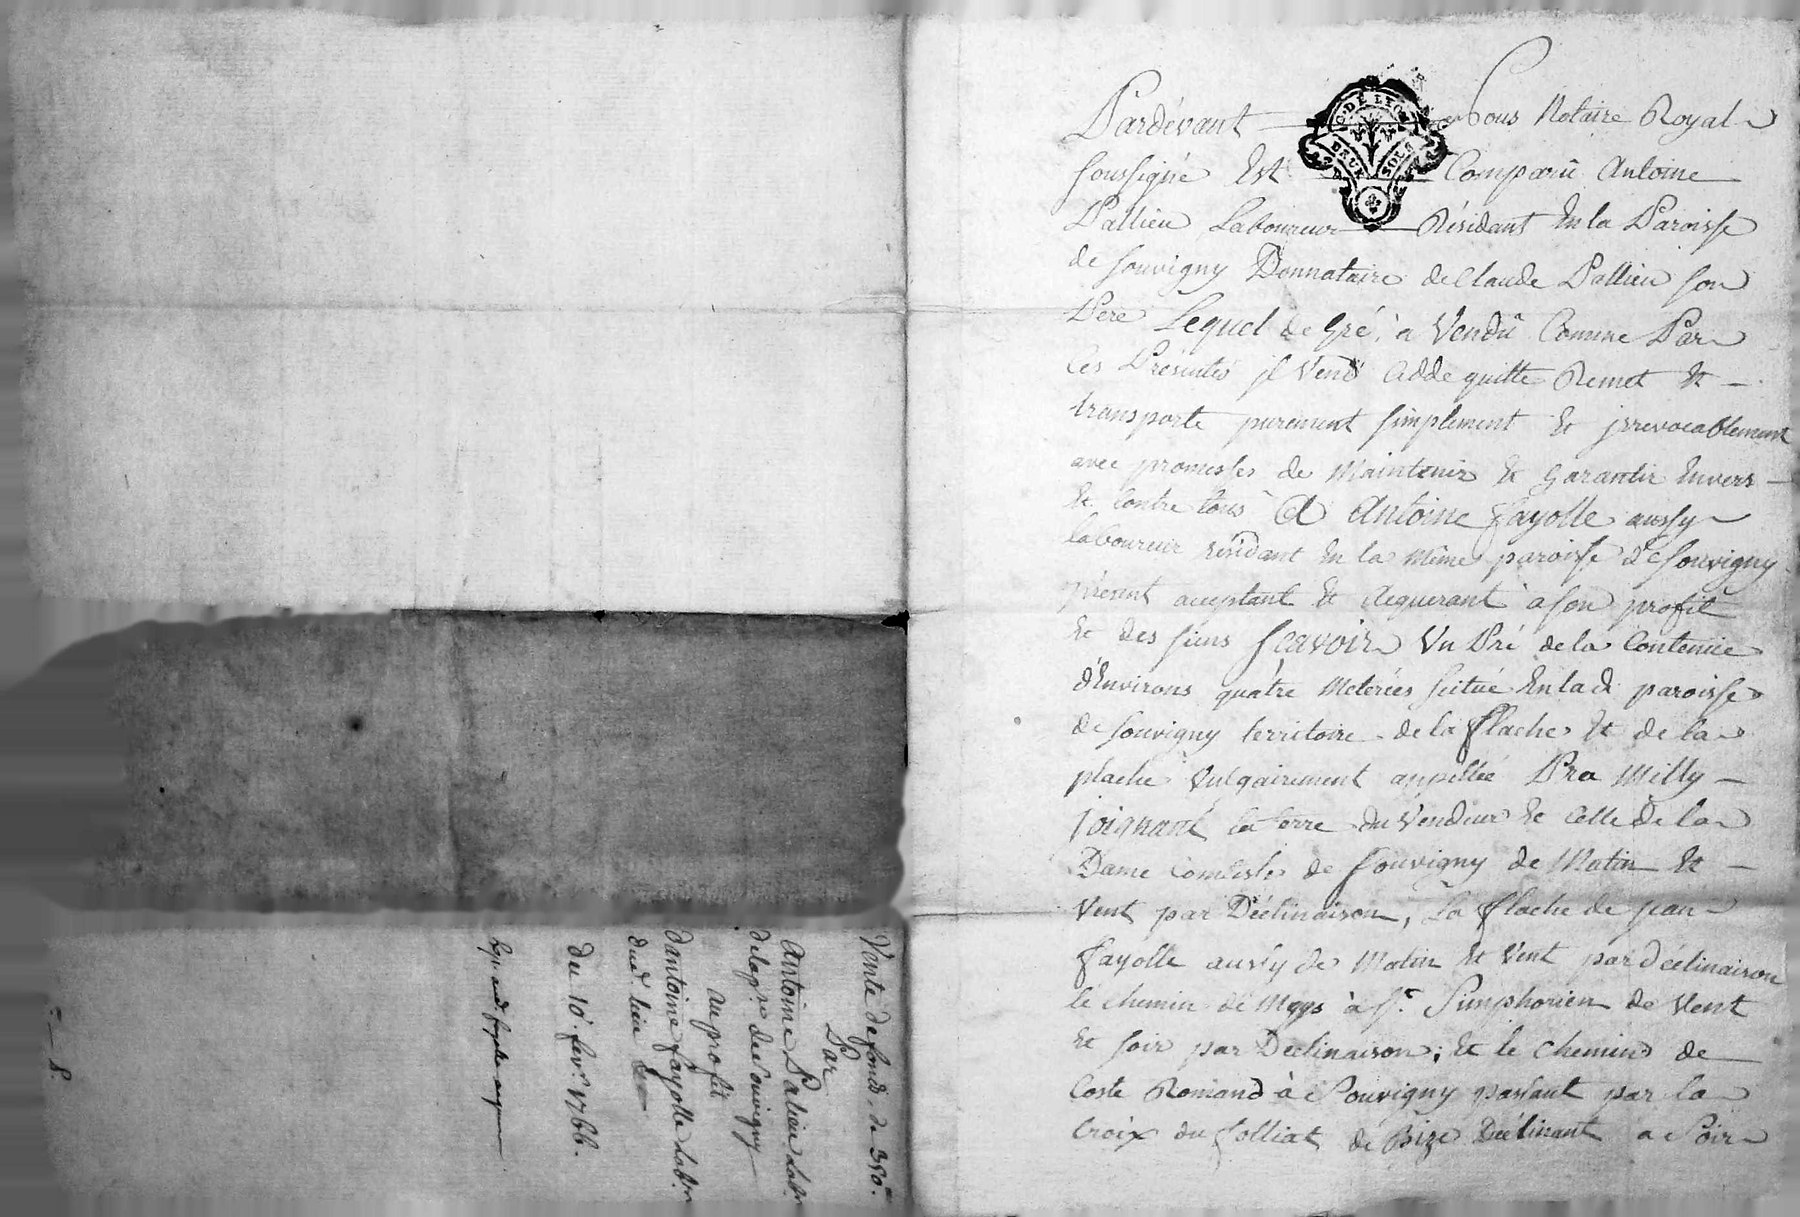 Pardevant Nous Notaire Royal
soussigné Est Comparû Antoine
Pallieu Laboureur Résidant En la Paroisse
de souvigny Donnataire de Claude Pallieu son
Pere Lequel de Gré, a Vendû Comme Par
Ces Présentes jl Vend Cedde quitte Remet Et
transporte purement simplement Et jrrevocablement
avec promesses de Maintenir Et Garantir Envers
Et Contre tous A Antoine fayolle aussy
laboureur résidant En la Même paroisse de souvigny
présent acceptant Et Requerant a son profit
Et des siens sCavoir Un Pré de la Contenüe
d'Environs quatre Meterées scitué En lad paroisse
de souvigny territoire de la flache Et de la
plache Vulgairement appellée Pra Milly
joignant la terre du Vendeur Et Celle de la
Dame Comtesse de souvigny de Matin Et
Vent par Déclinaison, La flache de jean
fayolle aussy de Matin Et Vent par déclinaison
le chemin de Mays à St. Simphorien de Vent
Et soir par Declinaison; Et le chemin de
Coste Romand à Souvigny passant par la
Croix du folliat de Bize Déclinant a Soir
Vente de fond de 350.
Par
Antoine Palieu Labr
de la pse de souvigny
au profit
d'antoine fayolle Labr
dud. lieu
du 10 fevr. 1766.
G. DE LYON
DEUX SOLS